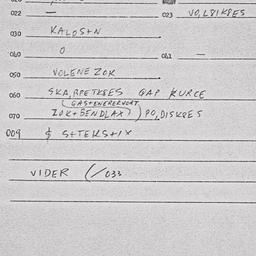 022 — 023 VO,L81KPES
030 KALOS+N
040 0 041 —
050 VOLENE ZOK
060 SKA,RPETKPES GAP KURCE
(GAS+ENERERVORT
070 ZOK+BENDLAX) PO,DISKPES
009 $ S+TEKS+1X
VIDER (/033